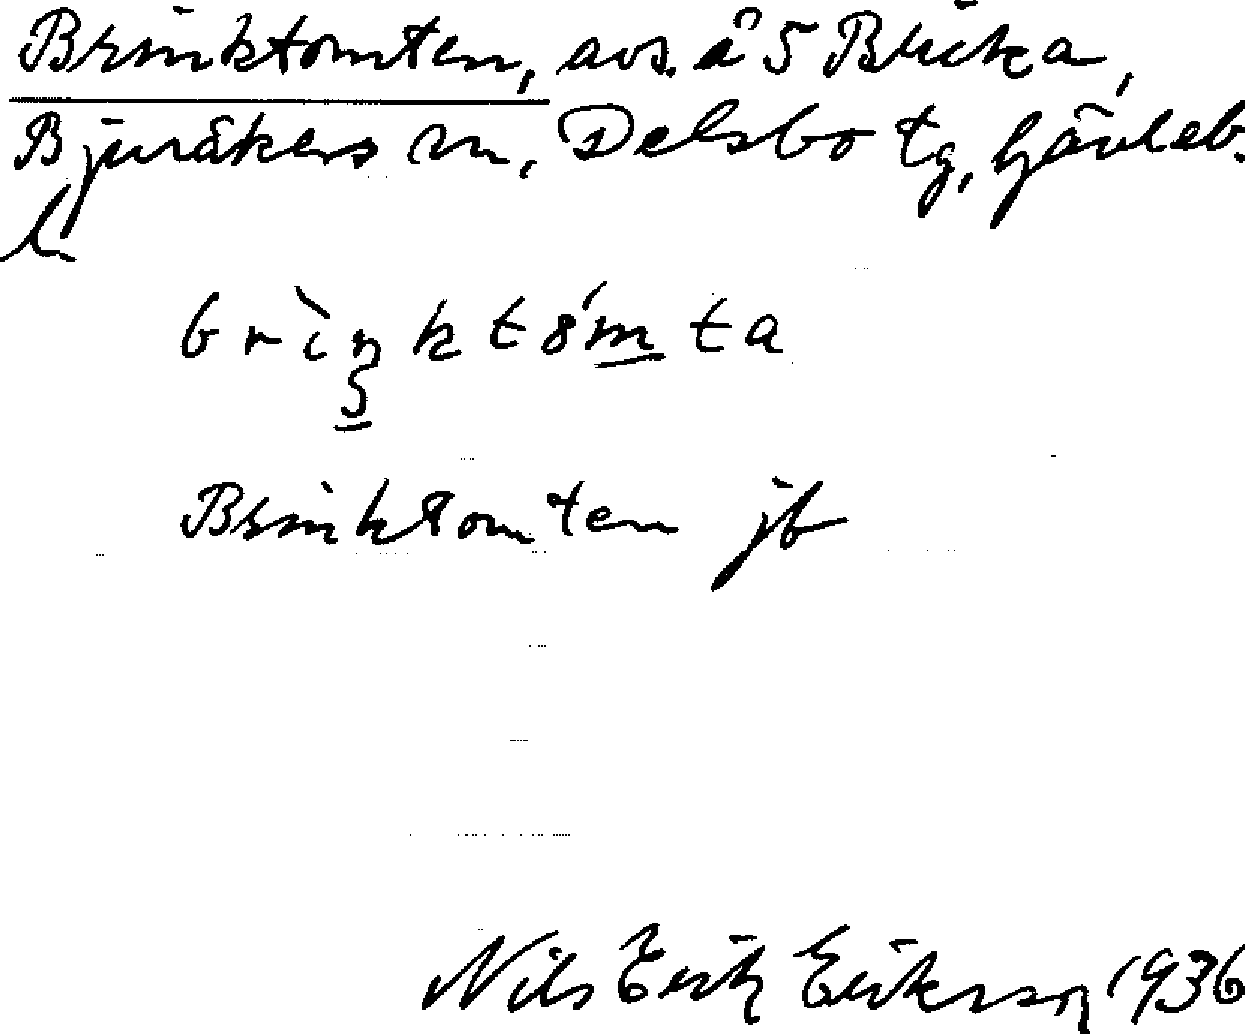 Brinktomten, avs. å 5 Bricka,
Bjuråkers sn, Delsbo tg, Gävleb.
l.
brìŋktómta
Brinktomten jb
Nils Erik Eriksson 1936